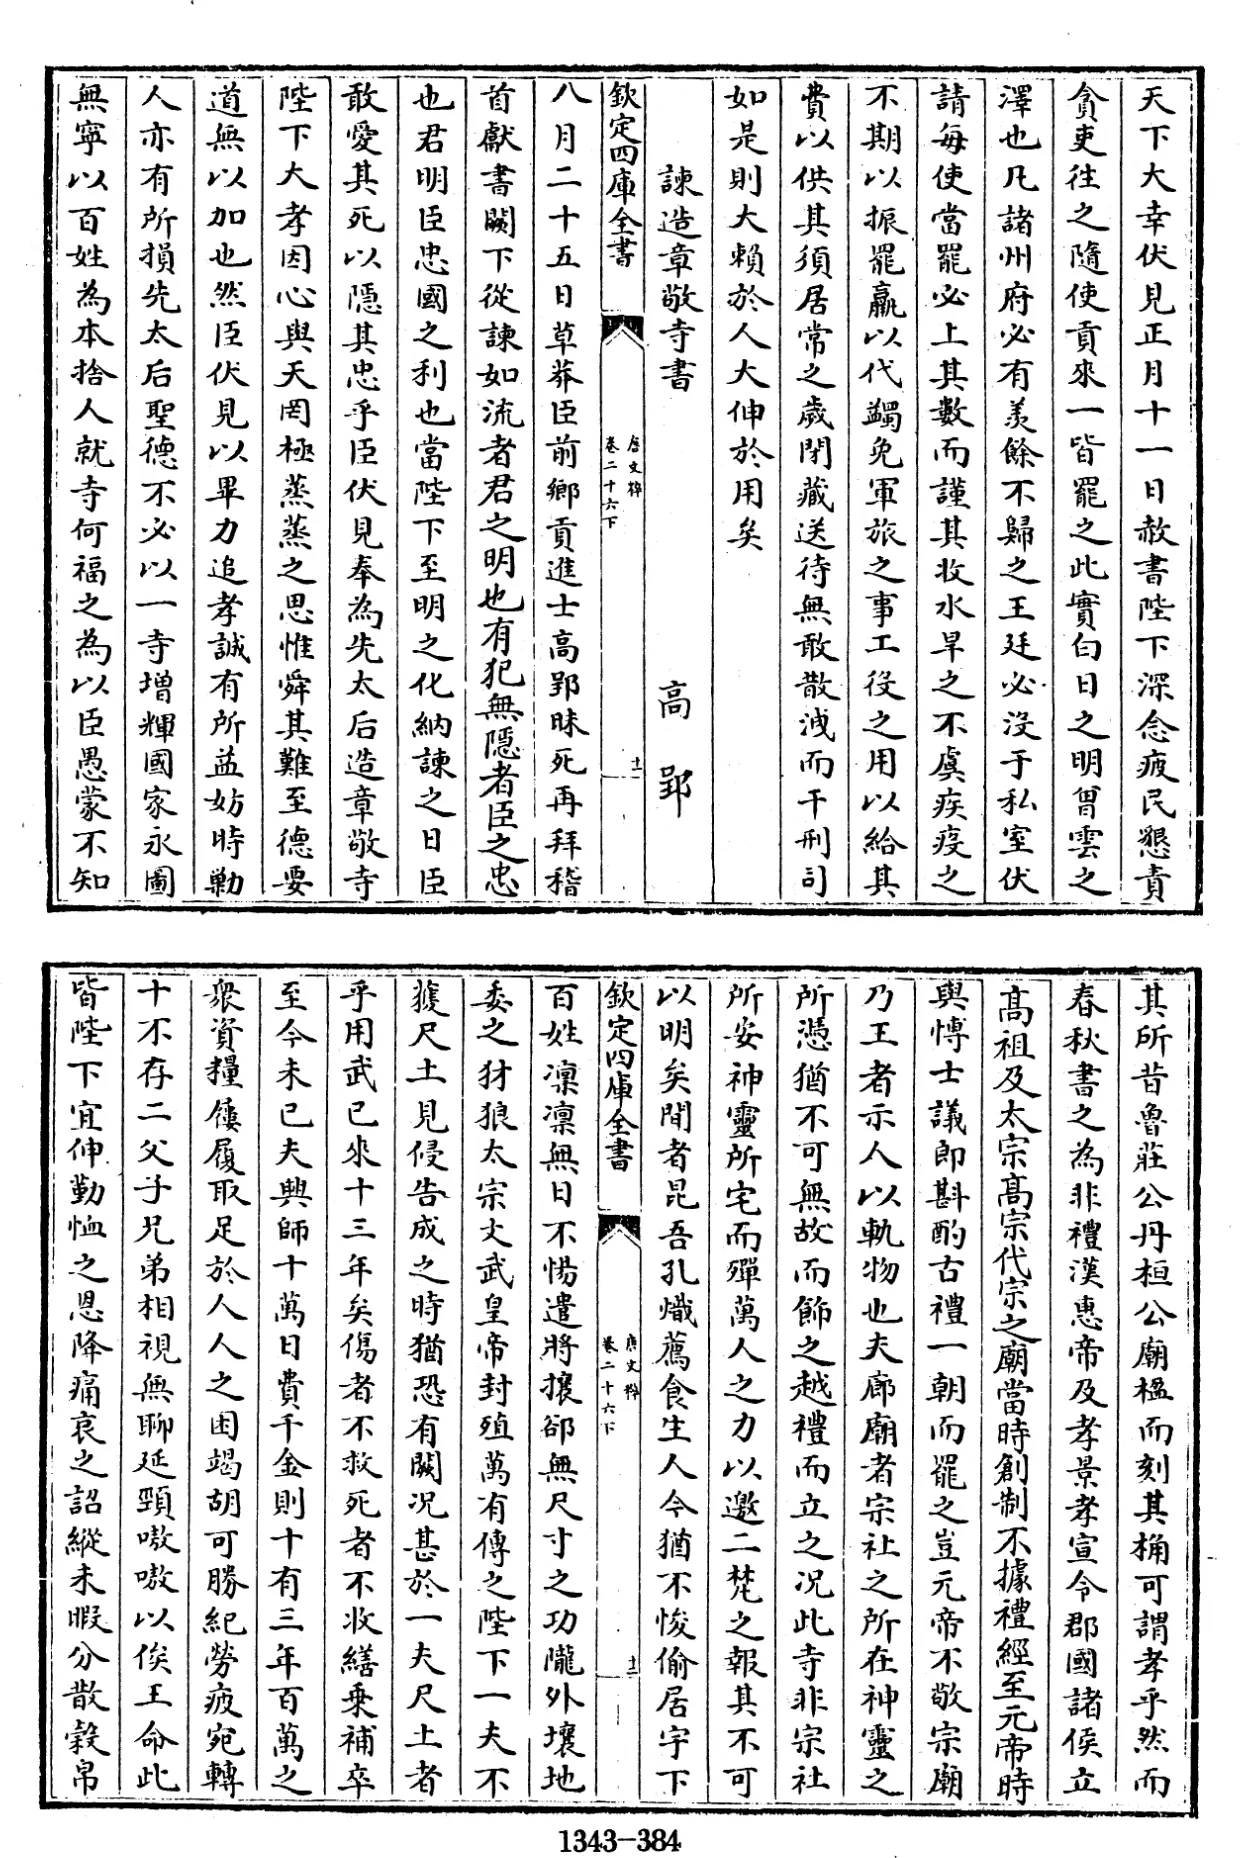 天下大幸伏見正月十一日赦書陛下深念疲民懇責
貪吏往之隨使貢來一皆罷之此實白日之明曽雲之
澤也凡諸州府必有羨餘不歸之王廷必没于私室伏
請每使當罷必上其數而謹其收水旱之不虞疾疫之
不期以振罷羸以代蠲免軍旅之事工役之用以給其
費以供其須居常之歲閉藏送待無敢散洩而干刑司
如是則大賴於人大伸於用矣
諫造章敬寺書 高郢
欽定四庫全書 唐文粹 卷二十六下 十一
八月二十五日草莽臣前鄉貢進士高郢昧死再拜稽
首獻書闕下從諫如流者君之明也有犯無隱者臣之忠
也君明臣忠國之利也當陛下至明之化納諫之日臣
敢愛其死以隱其忠乎臣伏見奉為先太后造章敬寺
陛下大孝因心與天罔極蒸蒸之思惟舜其難至德要
道無以加也然臣伏見以畢力追孝誠有所益妨時勦
人亦有所損先太后聖德不必以一寺增輝國家永圖
無寧以百姓為本捨人就寺何福之為以臣愚蒙不知
其所昔魯莊公丹桓公廟楹而刻其桷可謂孝乎然而
春秋書之為非禮漢惠帝及孝景孝宣令郡國諸侯立
髙祖及太宗髙宗代宗之廟當時創制不據禮經至元帝時
與愽士議郎斟酌古禮一朝而罷之豈元帝不敬宗廟
乃王者示人以軌物也夫廊廟者宗社之所在神靈之
所憑猶不可無故而飾之越禮而立之况此寺非宗社
所安神靈所宅而殫萬人之力以邀二梵之報其不可
以明矣間者昆吾孔熾薦食生人今猶不悛偷居宇下
欽定四庫全書 唐文粹 卷二十六下 十二
百姓凜凜無日不惕遣將攘郤無尺寸之功隴外壤地
委之豺狼太宗文武皇帝封殖萬有傳之陛下一夫不
獲尺土見侵告成之時猶恐有闕况甚於一夫尺土者
乎用武已來十三年矣傷者不救死者不收繕乗補卒
至今未已夫興師十萬日費千金則十有三年百萬之
衆資糧屨履取足於人人之困竭胡可勝紀勞疲宛轉
十不存二父子兄弟相視無聊延頸嗷嗷以俟王命此
皆陛下宜伸勤恤之恩降痛哀之詔縱未暇分散糓帛
1343-384